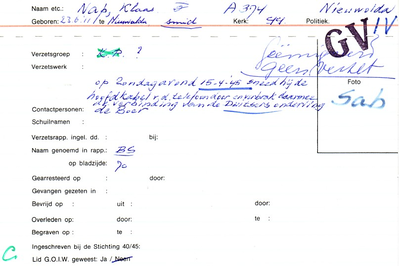 Naam etc.: Nap, Klaas F A 374 Nieuwolda
Geboren: 23.6.11 te Nieuwolda smid Kerk: Politiek.
GV IV
Verzetsgroep : ?
Verzetswerk :
Geen verzet
op Zondagavond 15-4-'45 sneed hij de
hoofdkabel v.d. telefoon door en verbrak daarmee
de verbinding van de Duitsers onderling
Foto
Sab
Contactpersonen: de Boer
Schuilnaam :
Verzetsrapp. ingel. dd. : bij:
Naam genoemd in rapp.: BS
op bladzijde: 70
Gearresteerd op : door:
Gevangen gezeten in :
Bevrijd op : uit : door:
Overleden op : door: te :
Begraven op : te :
Ingeschreven bij de Stichting 40/45:
C. Lid G.O.I.W. geweest: Ja / Neen